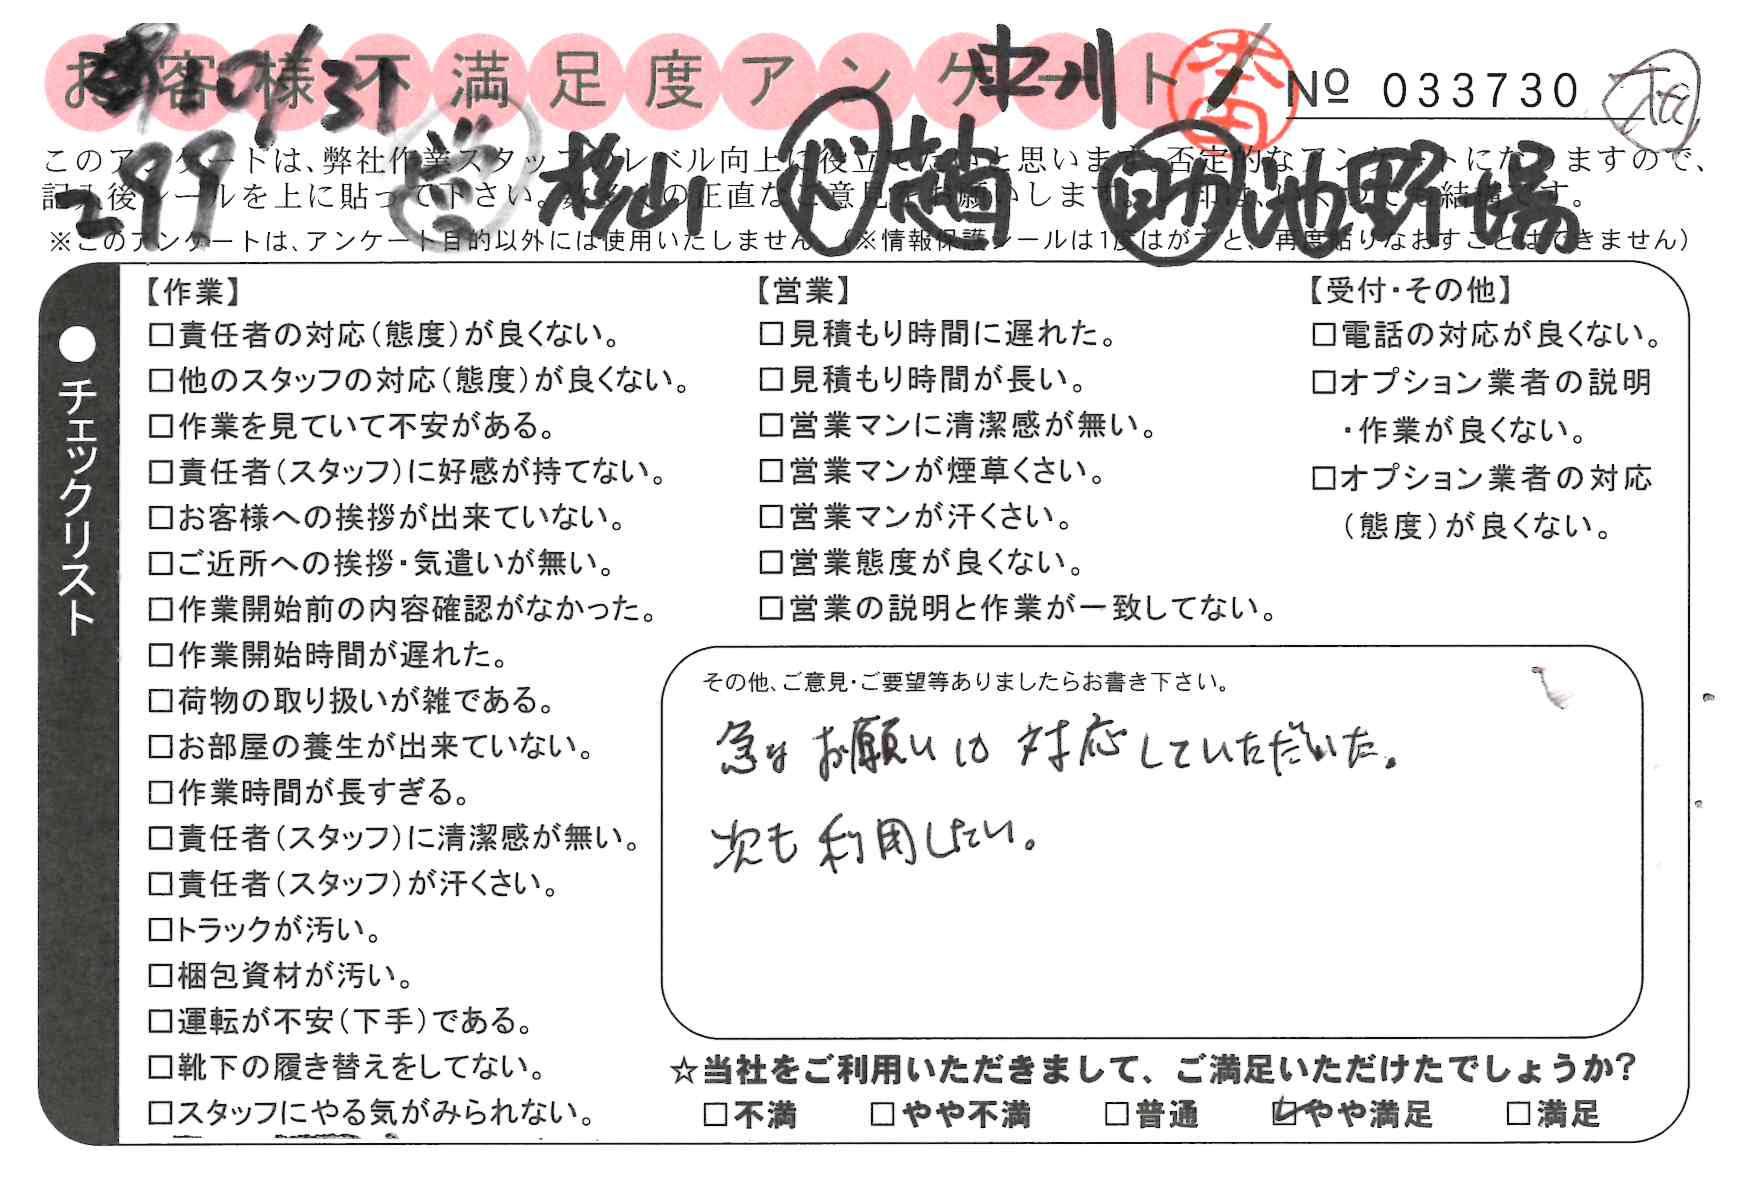 お客様不満足度アンケート
10/31
中川
本田
№ 033730
299
営 杉山
趙
助 池野 場
このアンケートは、弊社作業スタッフのレベル向上に役立てたいと思います。否定的なアンケートになりますので、
記入後シールを上に貼って下さい。
※このアンケートは、アンケート目的以外には使用いたしません。(※情報保護シールは1度はがすと、再度貼りなおすことはできません)
●チェックリスト
【作業】
□責任者の対応(態度)が良くない。
□他のスタッフの対応(態度)が良くない。
□作業を見ていて不安がある。
□責任者(スタッフ)に好感が持てない。
□お客様への挨拶が出来ていない。
□ご近所への挨拶・気遣いが無い。
□作業開始前の内容確認がなかった。
□作業開始時間が遅れた。
□荷物の取り扱いが雑である。
□お部屋の養生が出来ていない。
□作業時間が長すぎる。
□責任者(スタッフ)に清潔感が無い。
□責任者(スタッフ)が汗くさい。
□トラックが汚い。
□梱包資材が汚い。
□運転が不安(下手)である。
□靴下の履き替えをしてない。
□スタッフにやる気がみられない。
【営業】
□見積もり時間に遅れた。
□見積もり時間が長い。
□営業マンに清潔感が無い。
□営業マンが煙草くさい。
□営業マンが汗くさい。
□営業態度が良くない。
□営業の説明と作業が一致してない。
【受付・その他】
□電話の対応が良くない。
□オプション業者の説明
・作業が良くない。
□オプション業者の対応
(態度)が良くない。
その他、ご意見・ご要望等ありましたらお書き下さい。
急なお願いに対応していただいた。
次も利用したい。
☆当社をご利用いただきまして、ご満足いただけたでしょうか?
□不満 □やや不満 □普通 ☑やや満足 □満足